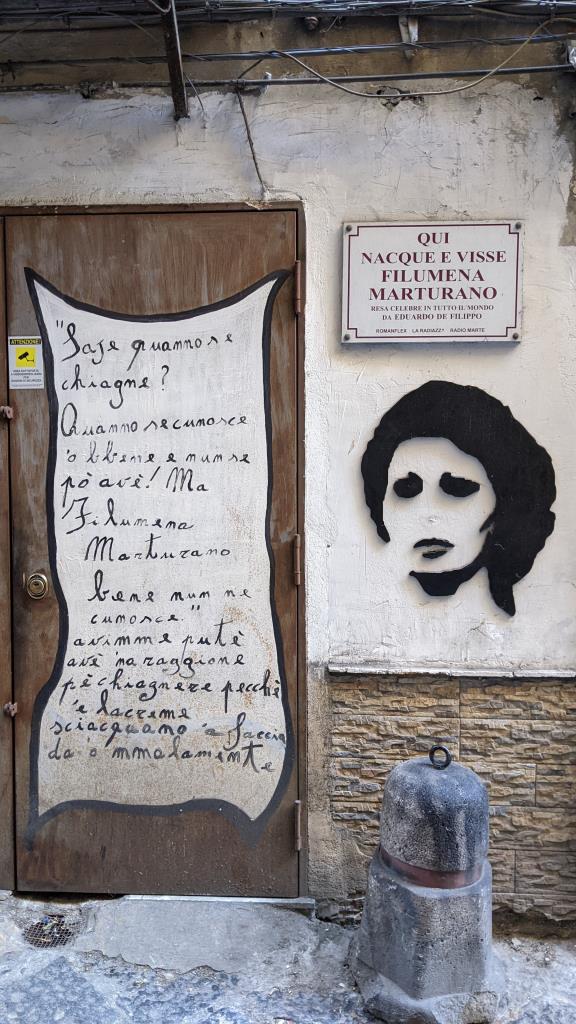 "Saje quanno se
chiagne?
Quanno se cunosce
'o bbene e nun se
pò avé! Ma
Filumena
Marturano
bene nun ne
cunosce."
avimme puté
avé 'na raggione
pè chiagnere pecchè
'e lacreme
sciacquano 'a faccia
da 'o mmalamente
ATTENZIONE!
QUI
NACQUE E VISSE
FILUMENA
MARTURANO
RESA CELEBRE IN TUTTO IL MONDO
DA EDUARDO DE FILIPPO
ROMANFLEX LA RADIAZZA RADIO MARTE